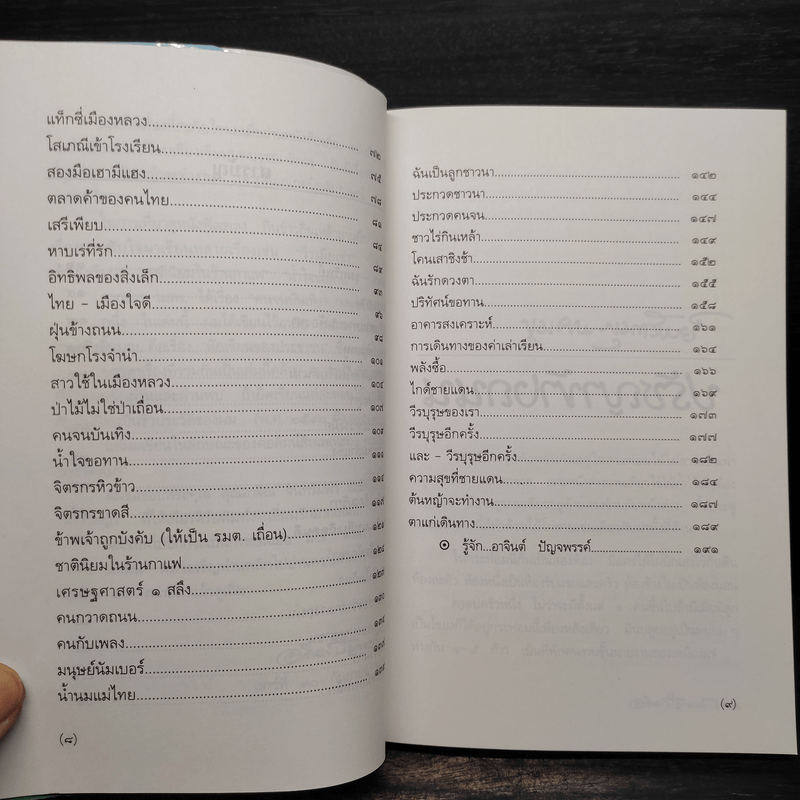 แท็กซี่เมืองหลวง
โสเภณีเข้าโรงเรียน ๗๒
สองมือเฮามีแฮง ๗๕
ตลาดค้าของคนไทย ๗๘
เสรีเพียบ ๘๑
หาบเร่ที่รัก ๘๔
อิทธิพลของสิ่งเล็ก ๘๙
ไทย – เมืองใจดี ๙๓
ฝุ่นข้างถนน ๙๖
โฆษกโรงจำนำ ๙๘
สาวใช้ในเมืองหลวง ๑๐๑
ป่าไม้ไม่ใช่ป่าเถื่อน ๑๐๔
คนจนบันเทิง ๑๐๗
น้ำใจขอทาน ๑๐๙
จิตรกรหิวข้าว ๑๑๑
จิตรกรขาดสี ๑๑๔
ข้าพเจ้าถูกบังคับ (ให้เป็น รมต. เถื่อน) ๑๑๗
ชาตินิยมในร้านกาแฟ ๑๒๑
เศรษฐศาสตร์ ๑ สลึง ๑๒๔
คนกวาดถนน ๑๒๗
คนกับเพลง ๑๓๐
มนุษย์นัมเบอร์ ๑๓๔
น้ำนมแม่ไทย ๑๓๗
๑๓๙
(๘)
ฉันเป็นลูกชาวนา ๑๔๒
ประกวดชาวนา ๑๔๔
ประกวดคนจน ๑๔๗
ชาวไร่กินเหล้า ๑๔๙
โคนเสาชิงช้า ๑๕๒
ฉันรักดวงตา ๑๕๕
ปริทัศน์ขอทาน ๑๕๘
อาคารสงเคราะห์ ๑๖๑
การเดินทางของค่าเล่าเรียน ๑๖๔
พลังซื้อ ๑๖๖
ไกด์ชายแดน ๑๖๙
วีรบุรุษของเรา ๑๗๓
วีรบุรุษอีกครั้ง ๑๗๗
และ – วีรบุรุษอีกครั้ง ๑๘๒
ความสุขที่ชายแดน ๑๘๔
ต้นหญ้าจะทำงาน ๑๘๗
ตาแก่เดินทาง ๑๘๙
รู้จัก...อาจินต์ ปัญจพรรค์ ๑๙๑
(๙)